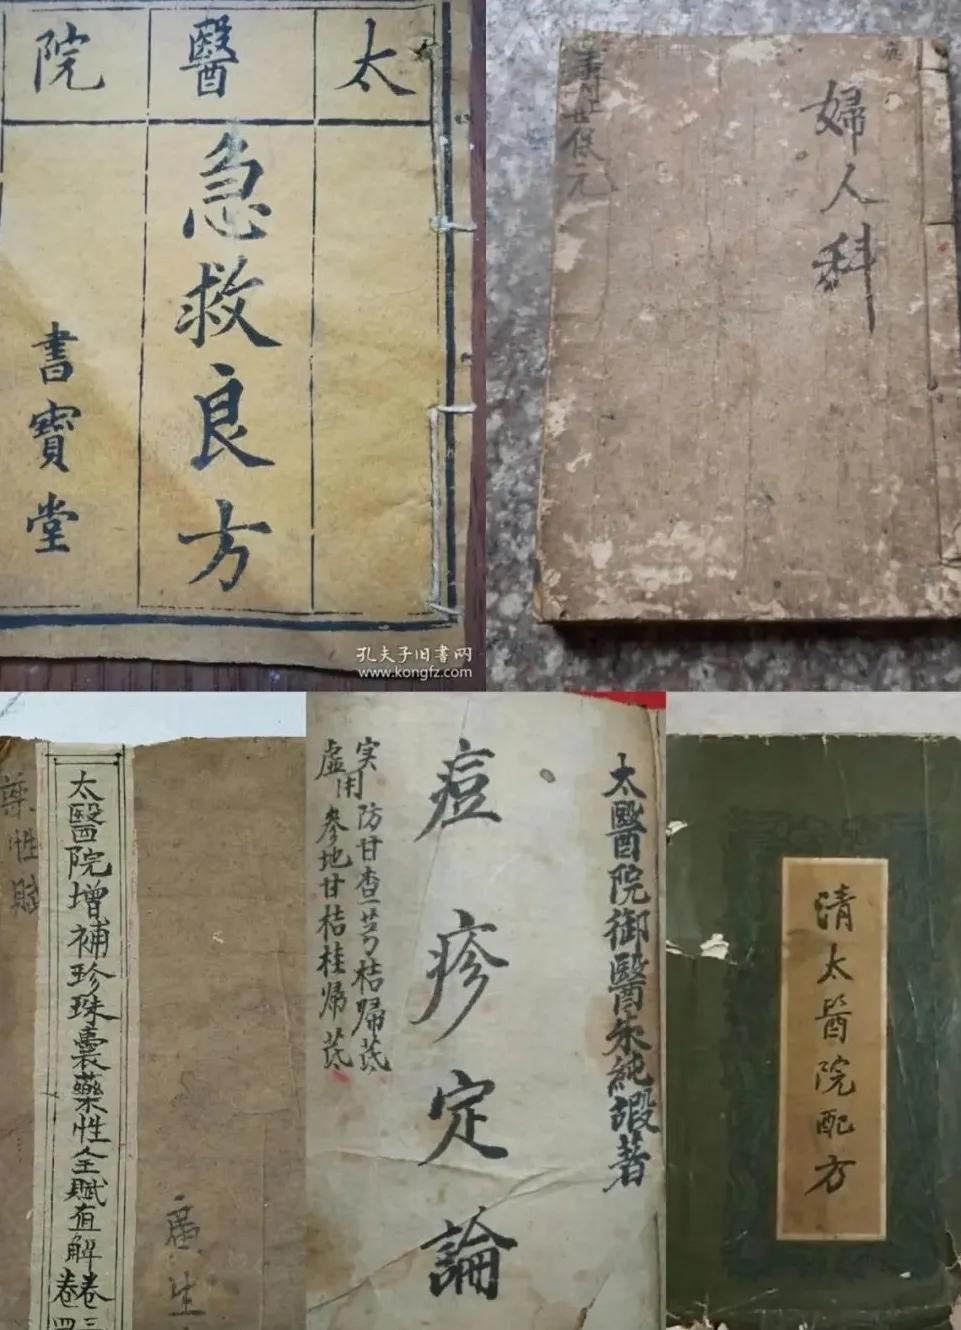 太醫院
急救良方
書寶堂
孔夫子旧書网
www.kongfz.com
婦人科
壽世保元
太醫院增補珍珠囊藥性全賦直解卷三
卷四
藥性賦
廣生
太醫院御醫朱純嘏著
痘疹定論
実用防甘查芎桔歸芪
虛用參地甘桔桂歸芪
清太醫院配方